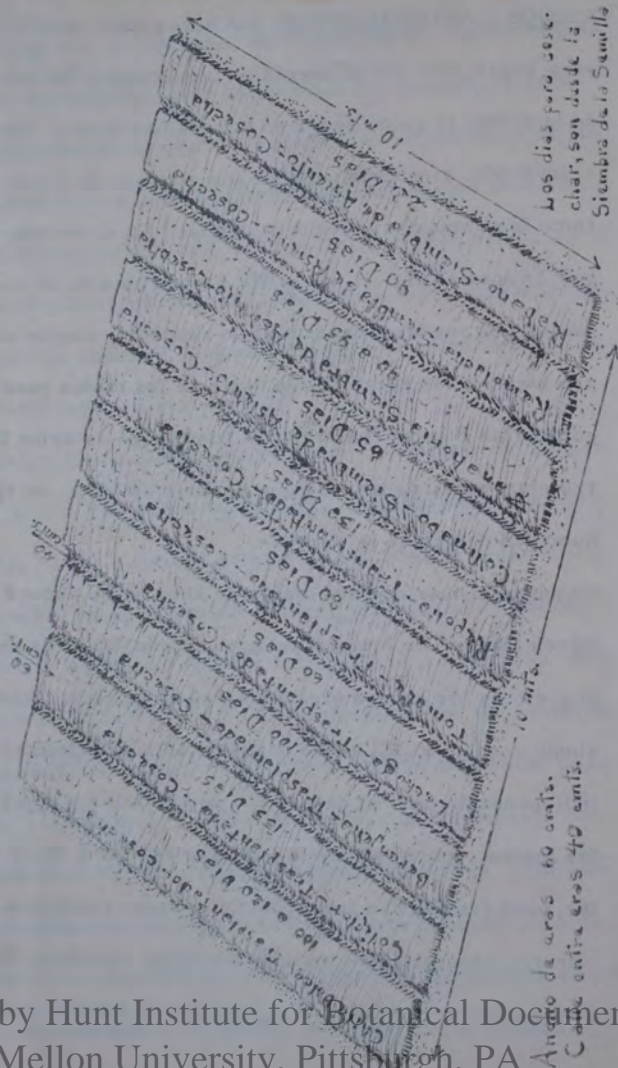 10 mts.
Rabano-Siembra de Asiento-Cosecha
Dias
Remolacha-Siembra de Asiento-Cosecha
90 Dias
Zanahoria-Siembra de Asiento-Cosecha
90 a 95 Dias
Colinabo-Siembra de Asiento-Cosecha
65 Dias
Repollo-Trasplantado-Cosecha
130 Dias
Tomate-Trasplantado-Cosecha
80 Dias
Lechuga-Trasplantado-Cosecha
60 Dias
Berenjena-Trasplantado-Cosecha
100 Dias
Coliflor-Trasplantado-Cosecha
135 Dias
Trasplantado-Cosecha
100 a 120 Dias
40 cmts.
60 cmts.
10 mts.
Ancho de eras 60 cmts.
Calle entre eras 40 cmts.
Los dias para cose-
char, son desde la
Siembra de la Semilla
by Hunt Institute for Botanical Documen
Mellon University, Pittsburgh, PA